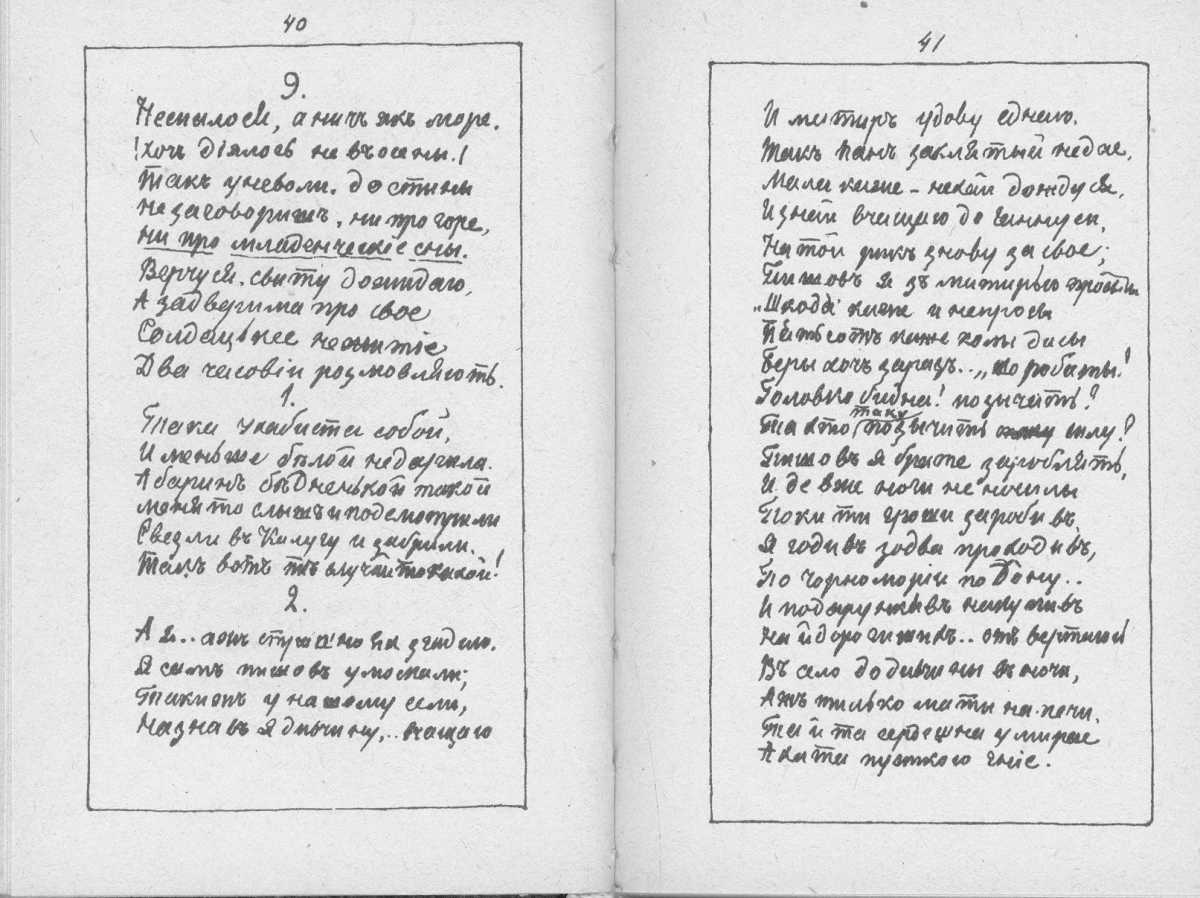 40
9.
Неспылося, а ничъ якъ море.
(Хочь діялось не въосени.)
Такъ уневоли. до стины
незаговоришъ, ни про горе,
ни про младенческіе сны.
Верчуся. свиту дожидаю,
А задверима про свое
Солдацькее нежитіе
Два часовіи розмовляють.
1.
Така ухабиста собой,
И меньше бѣлой недарила.
А баринъ бѣдненькой такой
меня то слышъ и подсмотрили
Свезли въ Калугу и забрили.
Такъ вотъ тѣ случай то какой!
2.
А я.. ажъ страшно як згадаю.
Я самъ пишовъ у москали;
Таки жъ у нашому сели,
Назнавъ я дивчину,.. вчащаю
41
И матиръ удову єднаю.
Такъ панъ заклятый недае,
Мала каже - нехай дождуся,
И знай вчащаю до Ганнуси,
На той рикъ знову за свое;
Пишовъ я зъ матирью просыты
„Шкода каже и непросы
Пятьсотъ каже колы дасы
Беры хочъ заразъ.. „що робыты!
Головко бидна! позычать?
Та хто таку позычить силу?
Пишовъ я брате заробляты,
И де вже ноги не носилы
Поки ти гроши заробивъ,
Я годивъ зодва проходивъ,
По Чорноморіи по Дону..
И подарункивъ накупивъ
Найдорогишихъ.. отъ вертаюсь
Въ село до дивчины въ ночи,
Ажъ тилько мати на печи,
Та й та сердешна умирае
А хата пусткою гніє.